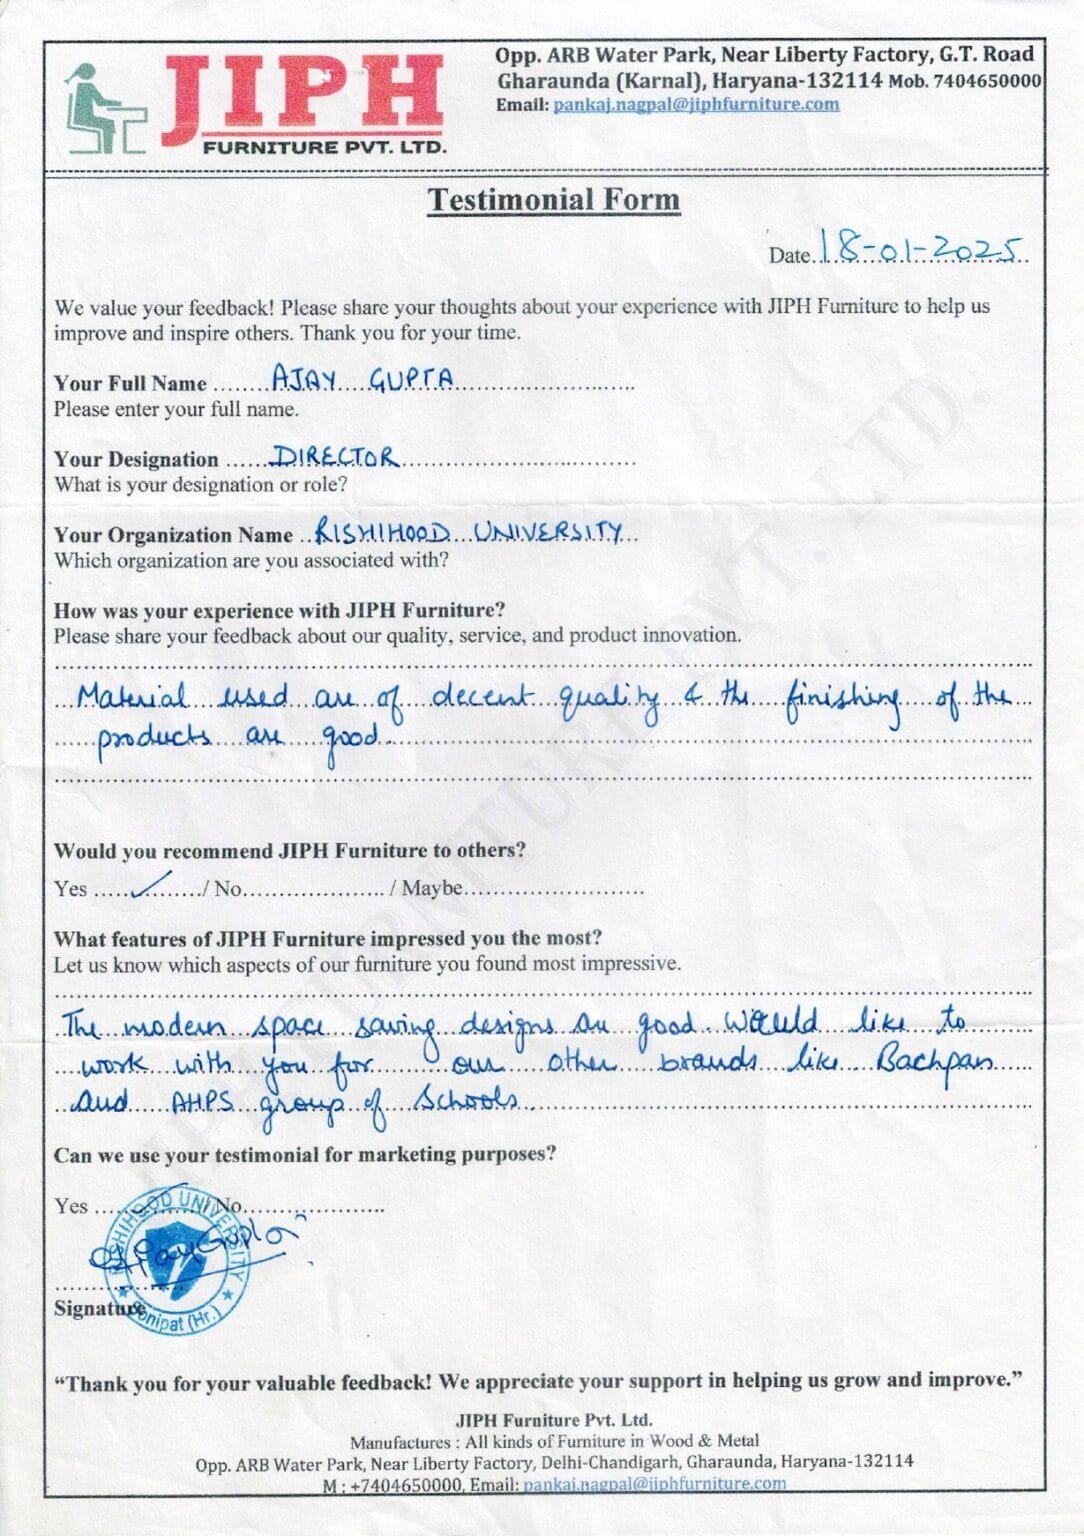 JIPH
FURNITURE PVT. LTD.
Opp. ARB Water Park, Near Liberty Factory, G.T. Road
Gharaunda (Karnal), Haryana-132114 Mob. 7404650000
Email: pankaj.nagpal@jiphfurniture.com
Testimonial Form
Date 18-01-2025
We value your feedback! Please share your thoughts about your experience with JIPH Furniture to help us
improve and inspire others. Thank you for your time.
Your Full Name ....... AJAY GUPTA
Please enter your full name.
Your Designation ...... DIRECTOR
What is your designation or role?
Your Organization Name .. RISHIHOOD UNIVERSITY
Which organization are you associated with?
How was your experience with JIPH Furniture?
Please share your feedback about our quality, service, and product innovation.
Material used are of decent quality & the finishing of the
products are good.
Would you recommend JIPH Furniture to others?
Yes .....✓....../ No....................... / Maybe.............................
What features of JIPH Furniture impressed you the most?
Let us know which aspects of our furniture you found most impressive.
The modern space saving designs are good. Would like to
work with you for our other brands like Bachpan
and AHPS group of Schools.
Can we use your testimonial for marketing purposes?
Yes ..................../ No.......................
RISHIHOOD UNIVERSITY
Ajay Gupta
Sonipat (Hr.)
Signature
“Thank you for your valuable feedback! We appreciate your support in helping us grow and improve.”
JIPH Furniture Pvt. Ltd.
Manufactures : All kinds of Furniture in Wood & Metal
Opp. ARB Water Park, Near Liberty Factory, Delhi-Chandigarh, Gharaunda, Haryana-132114
M : +7404650000, Email: pankaj.nagpal@jiphfurniture.com
JIPH FURNITURE PVT. LTD.